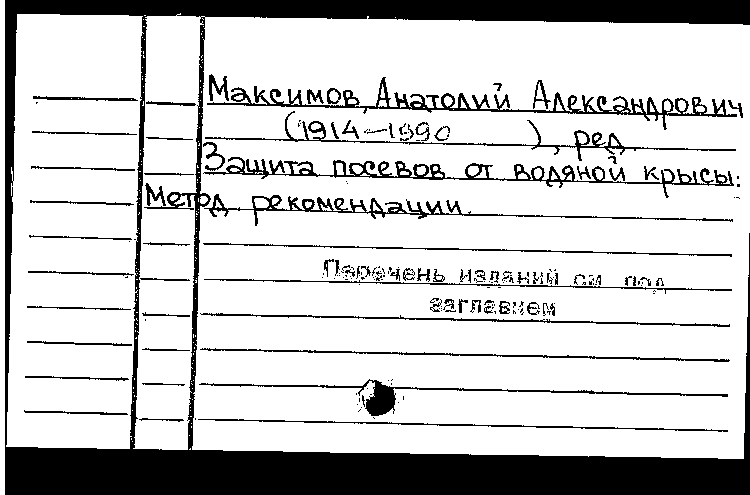 Максимов, Анатолий Александрович
(1914-1990 ), ред.
Защита посевов от водяной крысы:
Метод. рекомендации.
Перечень изданий см под
заглавием